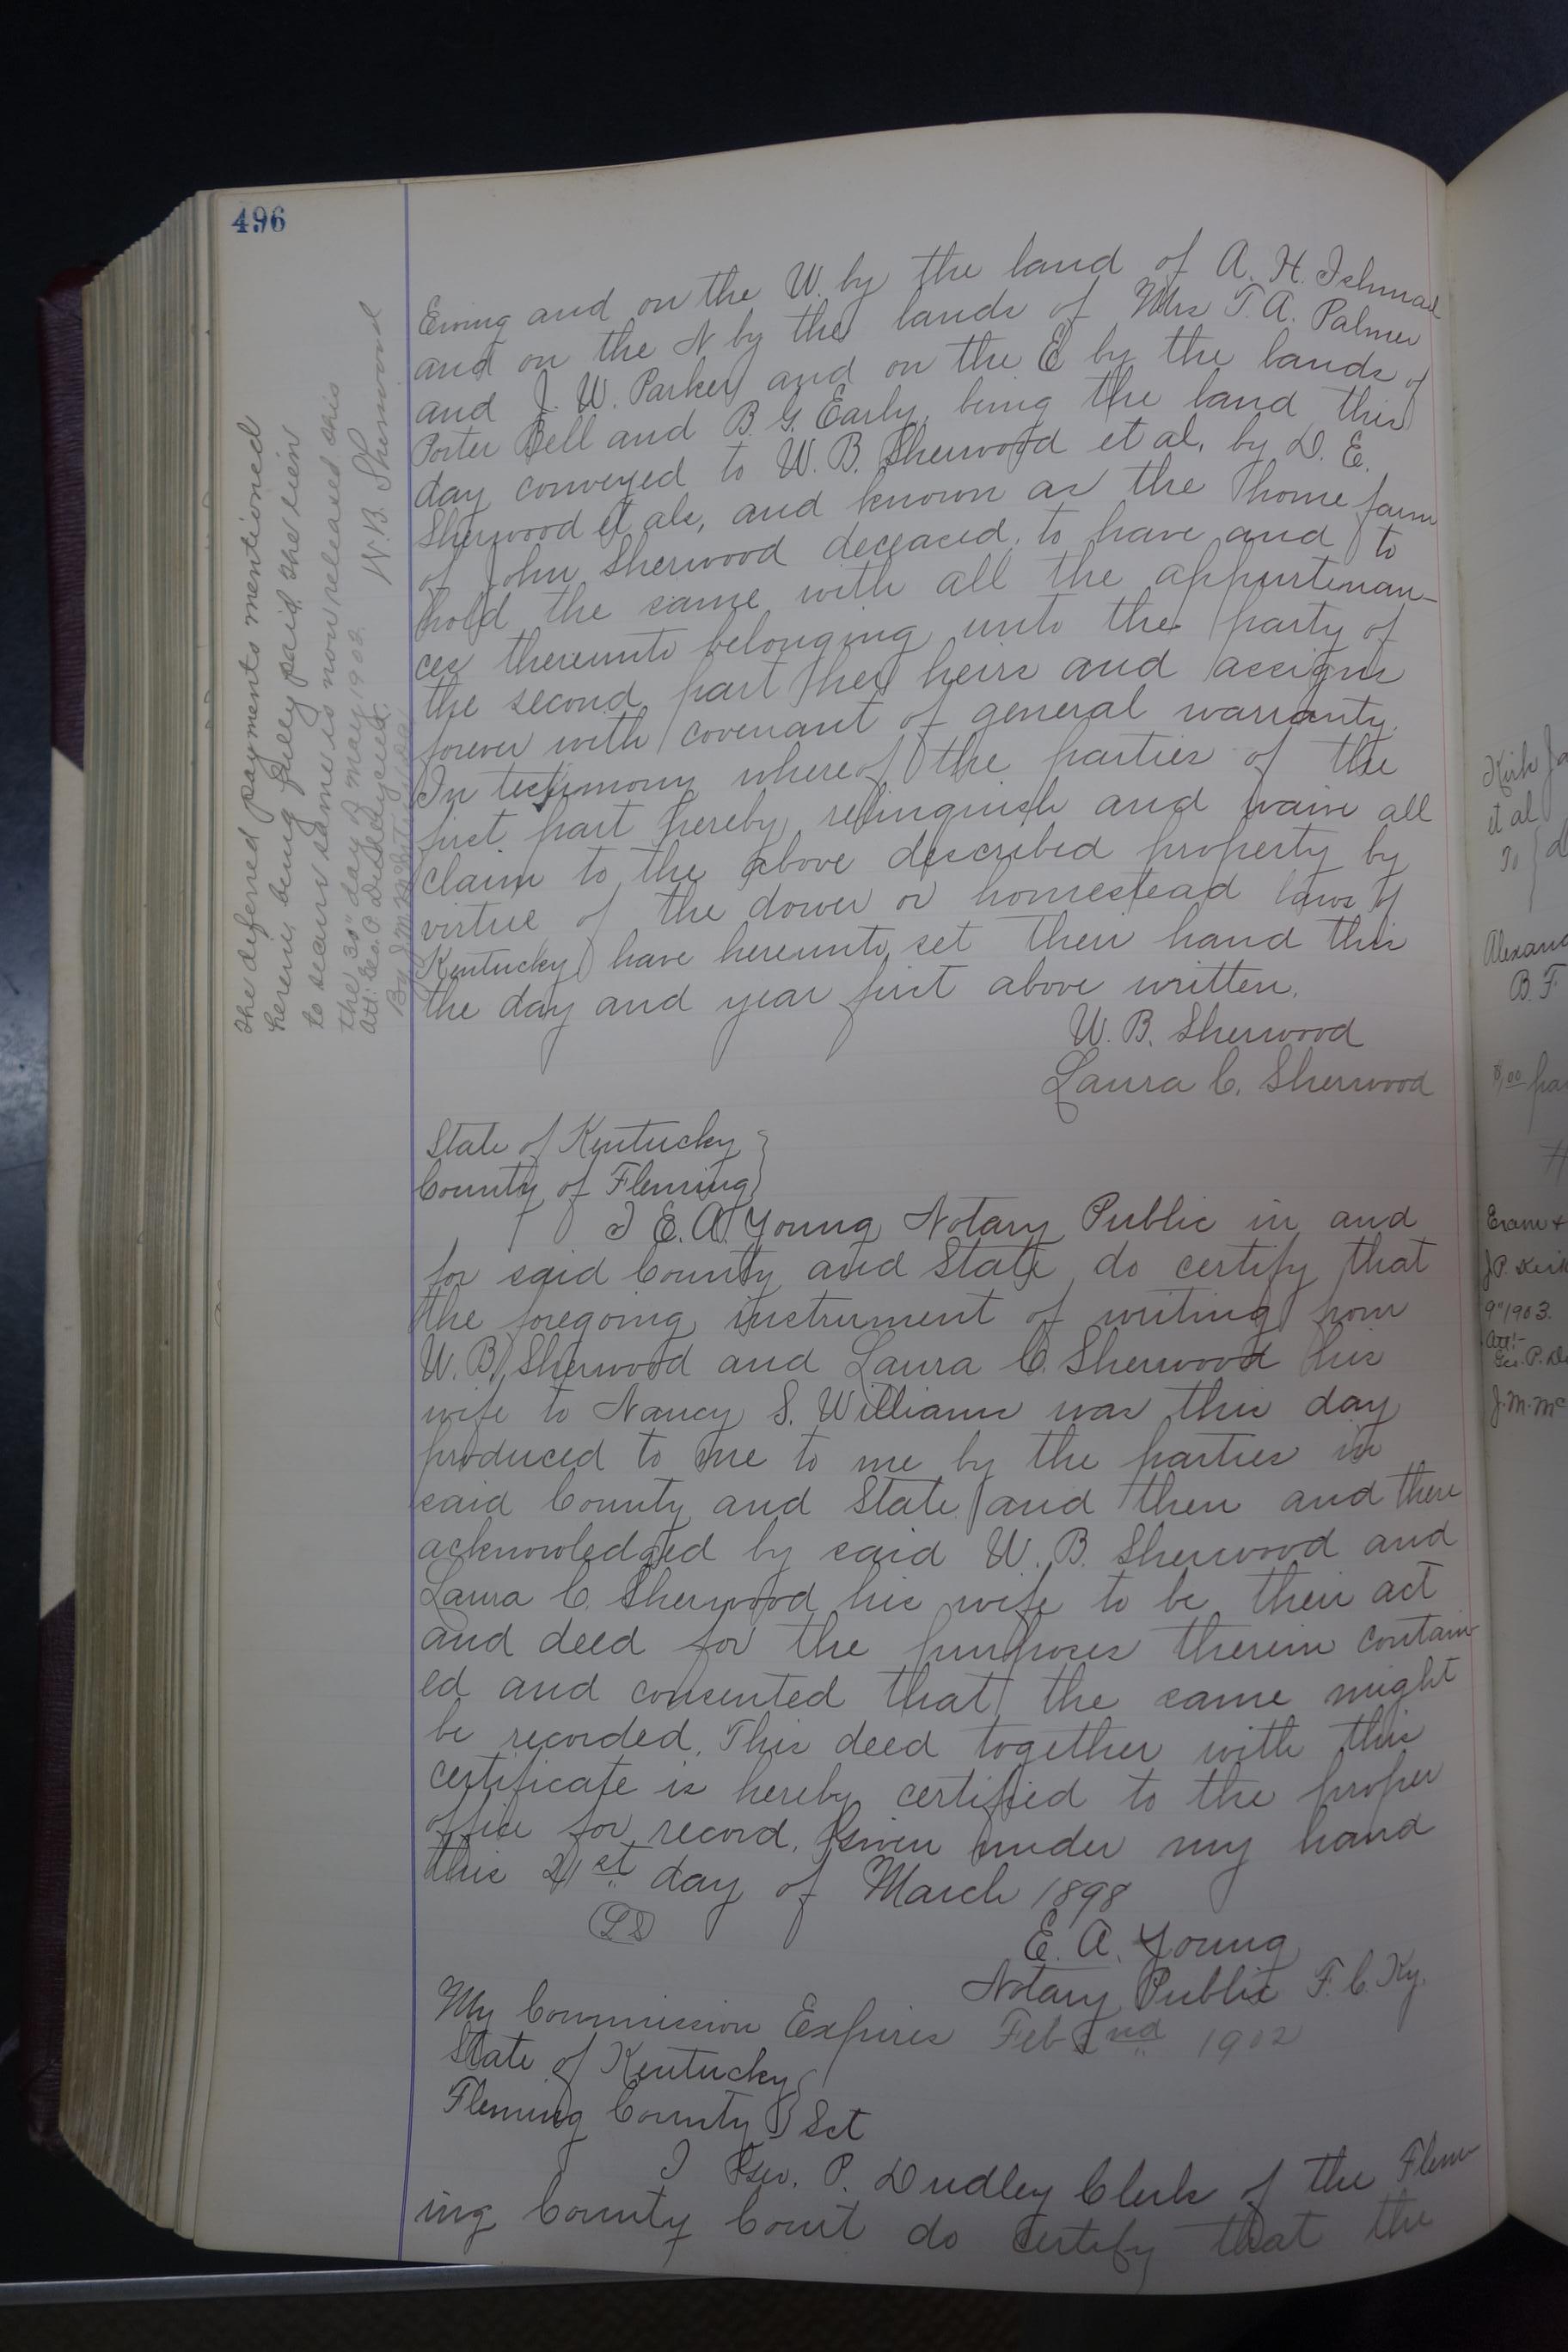 496
Ewing and on the W. by the land of A. H. Ishmael
and on the N by the lands of Mrs T. A. Palmer
and J. W. Parker and on the E by the lands of
Porter Bell and B. G. Early, being the land this
day conveyed to W. B. Sherwood et al, by D. E.
Sherwood et als, and known as the home farm
of John Sherwood deceased, to have and to
hold the same with all the appurtenan-
ces thereunto belonging unto the party of
the second part her heirs and assigns
forever with covenant of general warranty.
In testimony whereof the parties of the
first part hereby relinquish and waive all
claim to the above described property by
virtue of the dower or homestead laws of
Kentucky have hereunto set their hand this
the day and year first above written.
W. B. Sherwood
Laura C. Sherwood
State of Kentucky
County of Fleming
I E. A. Young Notary Public in and
for said County and State do certify that
the foregoing instrument of writing from
W. B. Sherwood and Laura C. Sherwood his
wife to Nancy S. Williams was this day
produced to me to me by the parties in
said County and State and then and there
acknowledged by said W. B. Sherwood and
Laura C. Sherwood his wife to be their act
and deed for the purposes therein contain-
ed and consented that the same might
be recorded. This deed together with this
certificate is hereby certified to the proper
office for record. Given under my hand
this 21st day of March 1898
LS
E. A. Young
Notary Public F. C. Ky.
My Commission Expires Feb 2nd 1902
State of Kentucky
Fleming County Sct
I Geo. P. Dudley Clerk of the Flem-
ing County Court do certify that the
The deferred payments mentioned
herein, being fully paid, the lien
to secure same is now released this
the 30" day of May 1902.
W. B. Sherwood
Att: Geo. P. Dudley
By J. M.
Kirk
et al
To
Alexand
B. F
Evans +
J. P.
9" 1903.
Att:-
Geo. P. Du
J. M. Mc